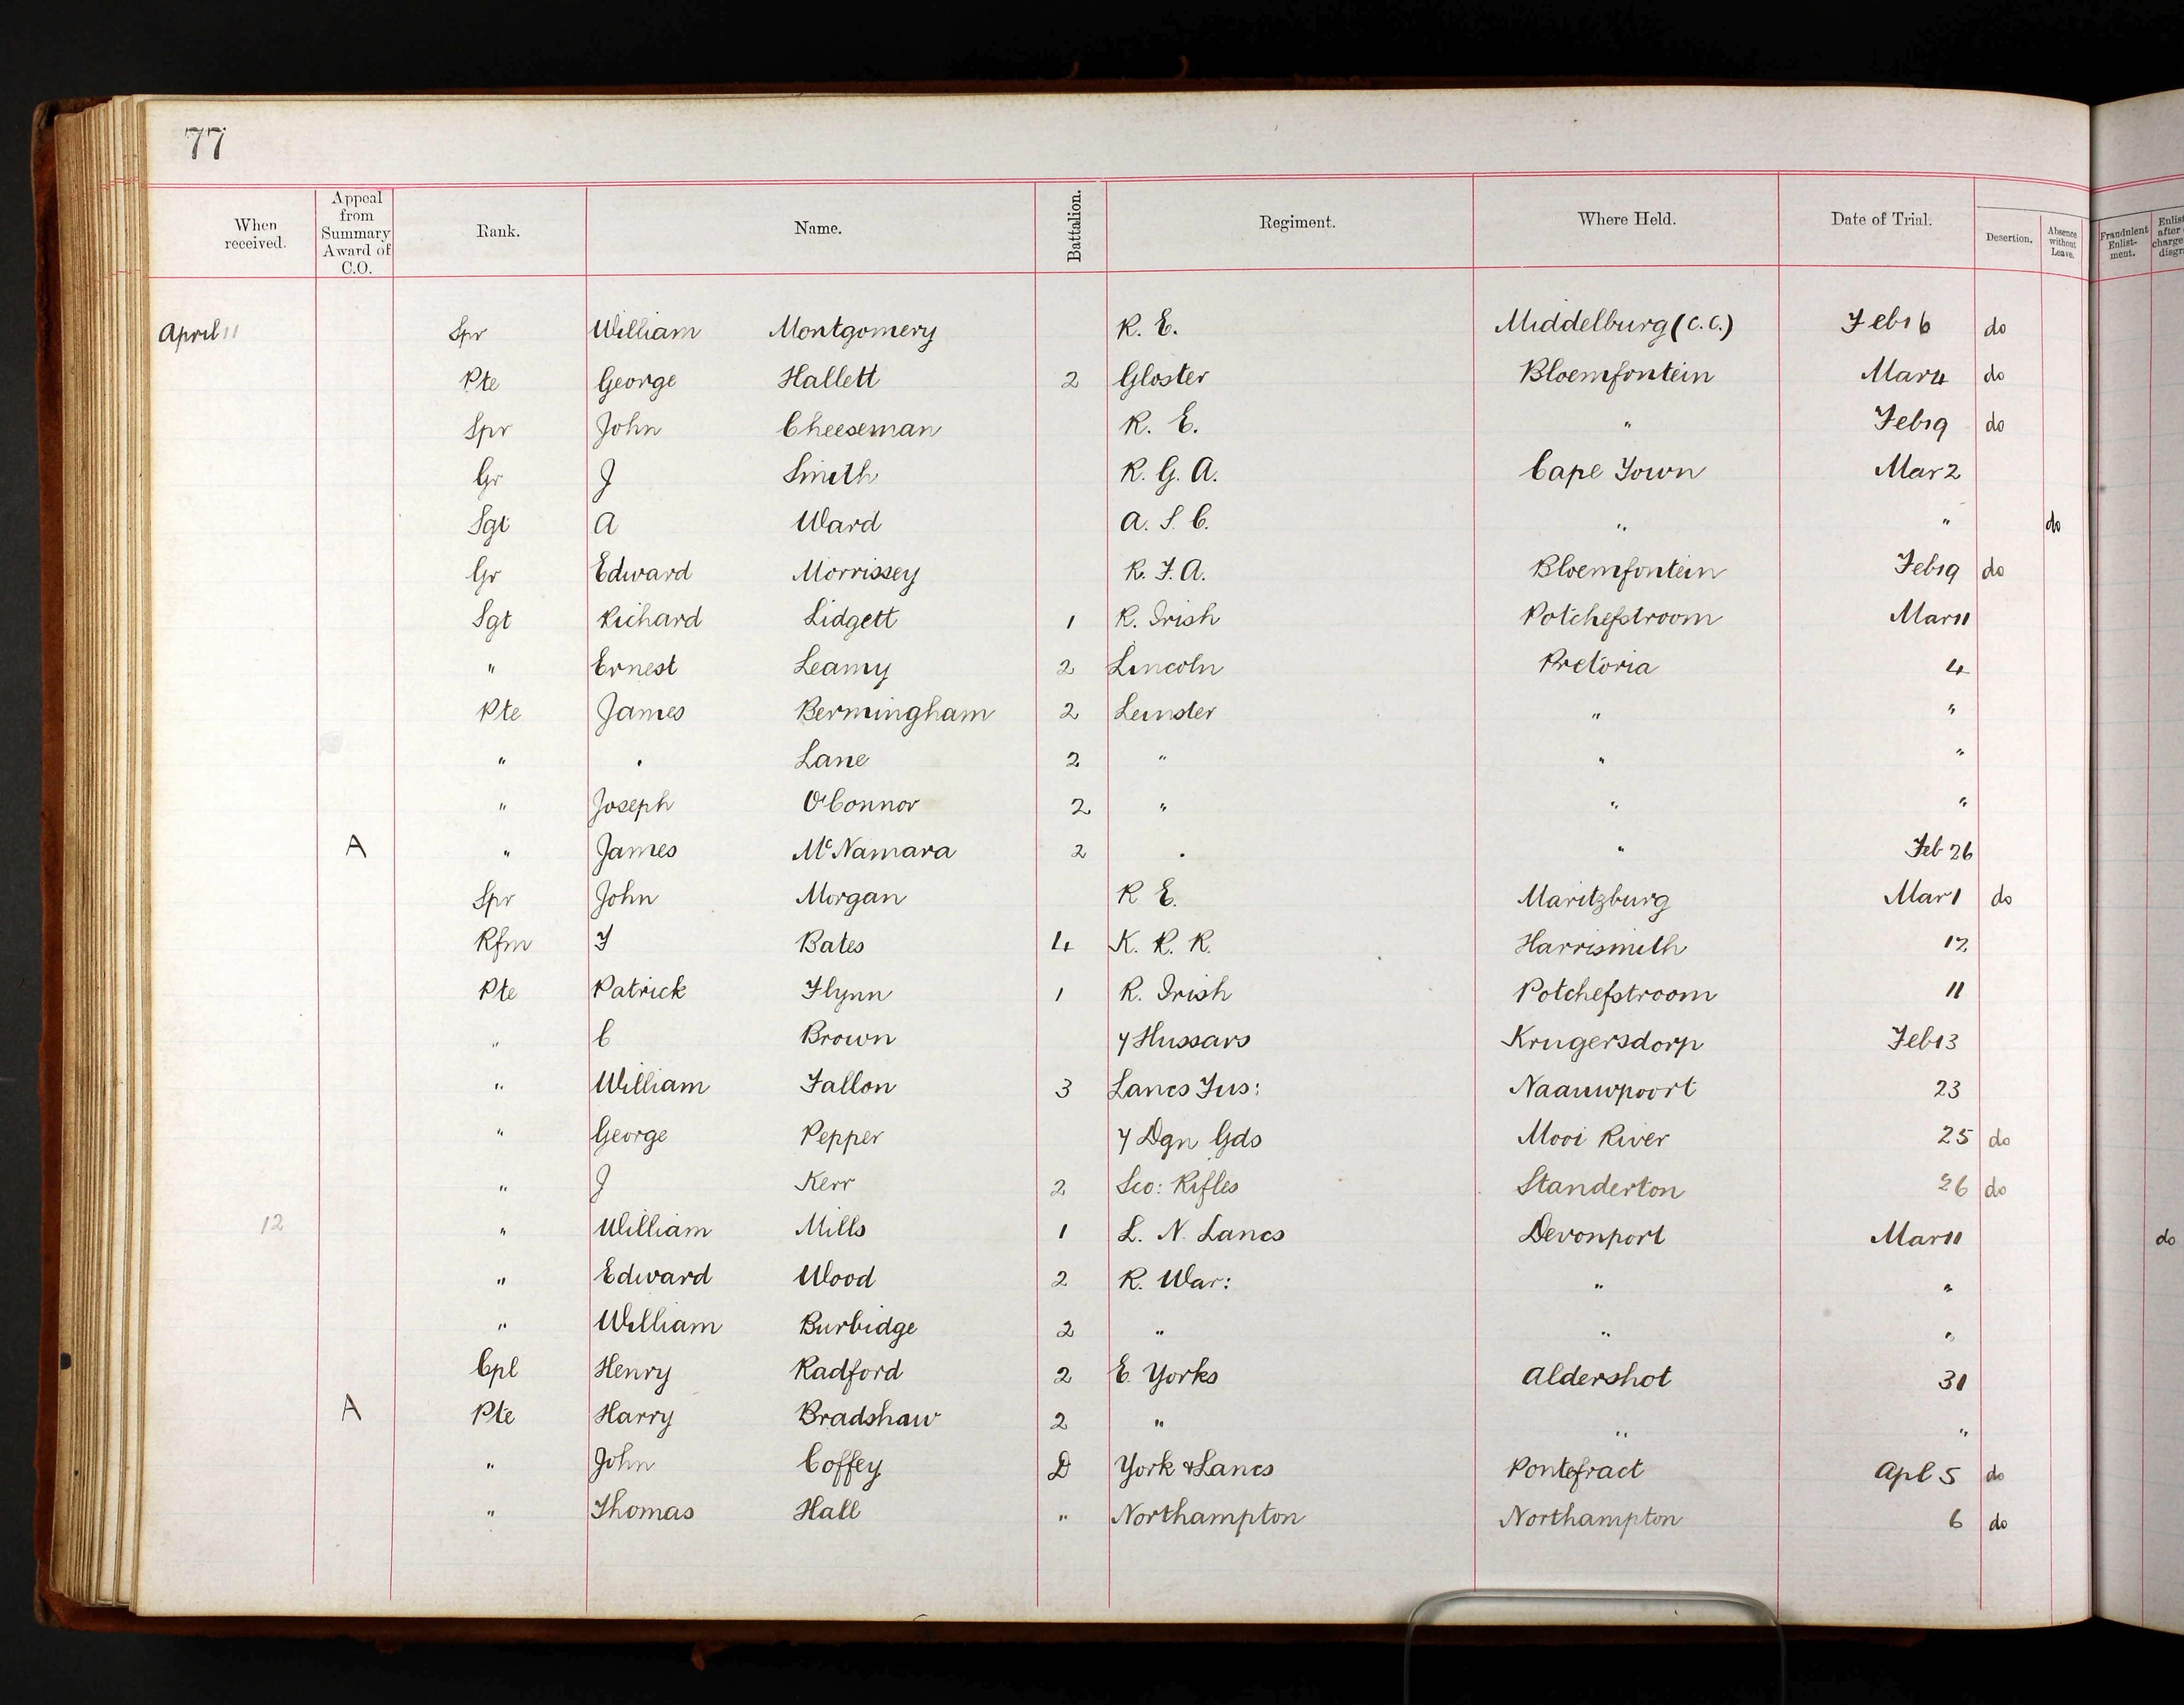 77
When received. Appeal from Summary Award of C.O. Rank. Name. Battalion. Regiment. Where Held. Date of Trial. Desertion. Absence without Leave. Fraudulent Enlist-ment.
April 11 Spr William Montgomery R. E. Middelburg (C.C.) Feb 16 do
Pte George Hallett 2 Gloster Bloemfontein Mar 4 do
Spr John Cheeseman R. E. " Feb 19 do
Gr J Smith R. G. A. Cape Town Mar 2
Sgt A Ward A. S. C. " " do
Gr Edward Morrissey R. F. A. Bloemfontein Feb 19 do
Sgt Richard Lidgett 1 R. Irish Potchefstroom Mar 11
" Ernest Leamy 2 Lincoln Pretoria 4
Pte James Bermingham 2 Leinster " "
" " Lane 2 " " "
" Joseph O'Connor 2 " " "
A " James McNamara 2 " " Feb 26
Spr John Morgan R E. Maritzburg Mar 1 do
Rfm F Bates 4 K. R. R. Harrismith 12
Pte Patrick Flynn 1 R. Irish Potchefstroom 11
" C Brown 7 Hussars Krugersdorp Feb 13
" William Fallon 3 Lancs Fus: Naauwpoort 23
" George Pepper 7 Dgn Gds Mooi River 25 do
" J Kerr 2 Sco: Rifles Standerton 26 do
12 " William Mills 1 L. N. Lancs Devonport Mar 11 do
" Edward Wood 2 R. War: " "
" William Burbidge 2 " " "
Cpl Henry Radford 2 E. Yorks Aldershot 31
A Pte Harry Bradshaw 2 " " "
" John Coffey D York & Lancs Pontefract Apl 5 do
" Thomas Hall " Northampton Northampton 6 do